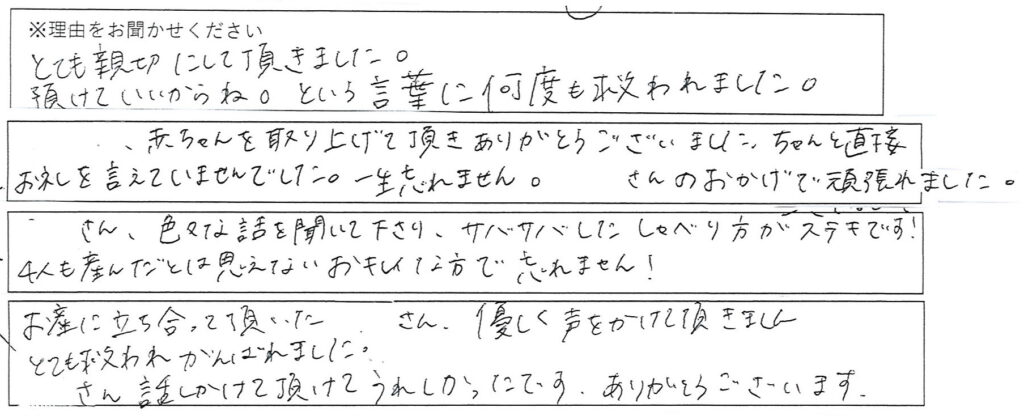 ※理由をお聞かせください
とても親切にして頂きました。
預けていいからね。という言葉に何度も救われました。
、赤ちゃんを取り上げて頂きありがとうございました、ちゃんと直接
お礼を言えていませんでした。一生忘れません。 さんのおかげで頑張れました。
さん、色々な話を聞いて下さり、サバサバしたしゃべり方がステキです!
4人も産んだとは思えないおキレイな方で忘れません!
お産に立ち合って頂いた さん、優しく声をかけて頂きまし
とても救われがんばれました。
さん話しかけて頂けてうれしかったです。ありがとうございます。